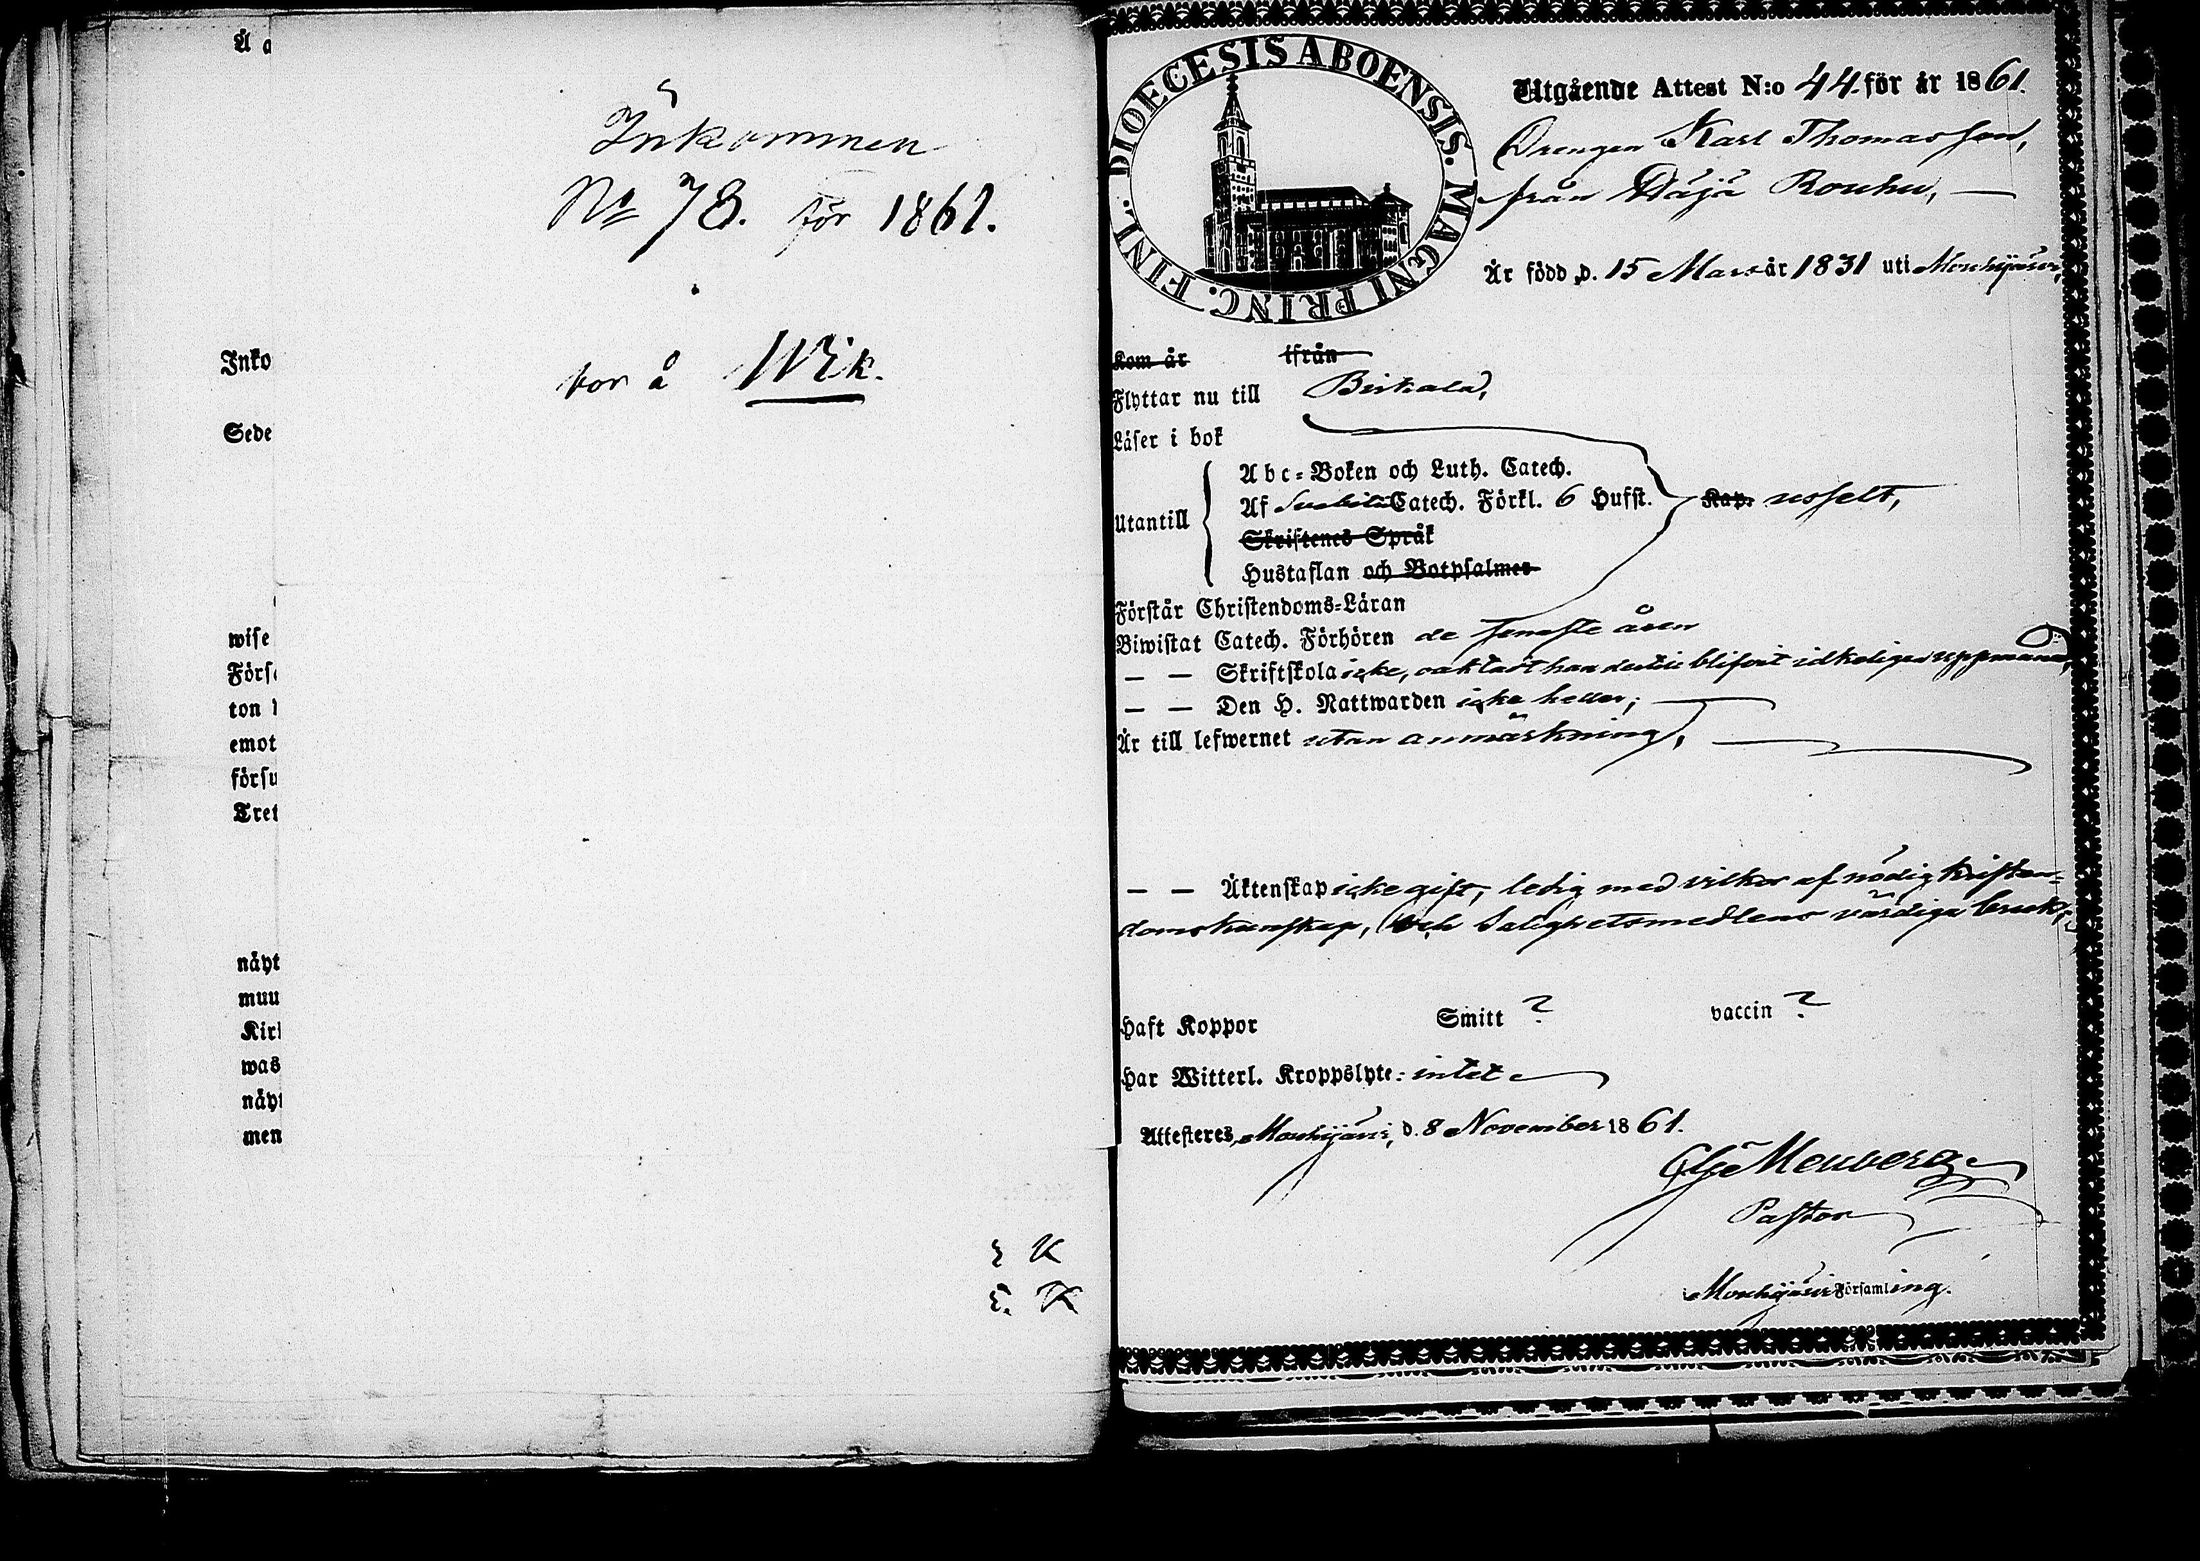 Å a
Inkommen
No 78. för 1861.
Inko
bor å Wik.
Sede
wise
Förs
ton
emot
försu
Tret
näyt
muu
Kirk
was
näyt
men
DIOECESIS ABOENSIS. MAGNI PRINC. FINL.
Utgående Attest N:o 44 för år 1861.
Drengen Karl Thomasson,
från Häijä Rouhu,
Är född d. 15 Mars år 1831 uti Mouhijärvi,
Kom år ifrån
Flyttar nu till Birkala,
Läser i bok
Utantill
Abc-Boken och Luth. Catech.
Af Svebilii Catech. Förkl. 6 Hufst. Kap. usselt,
Skriftenes Språk
Hustaflan och Botpsalmer
Förstår Christendoms-Läran
Biwistat Catech. Förhören de senaste åren
— — Skriftskola icke, oaktadt han dertill blifvit idkeligen uppmanad,
— — Den H. Nattwarden icke heller;
Är till lefwernet utan anmärkning,
— — Äktenskap icke gift, ledig med vilkor af nödig kristen-
domskunskap, och Salighetsmedlens värdiga bruk,
Haft Koppor Smitt ? vaccin ?
Har Witterl. Kroppslyte: intet
Attesteres, Mouhijärvi, d. 8 November 1861.
Pastor
Mouhijärvi Församling.